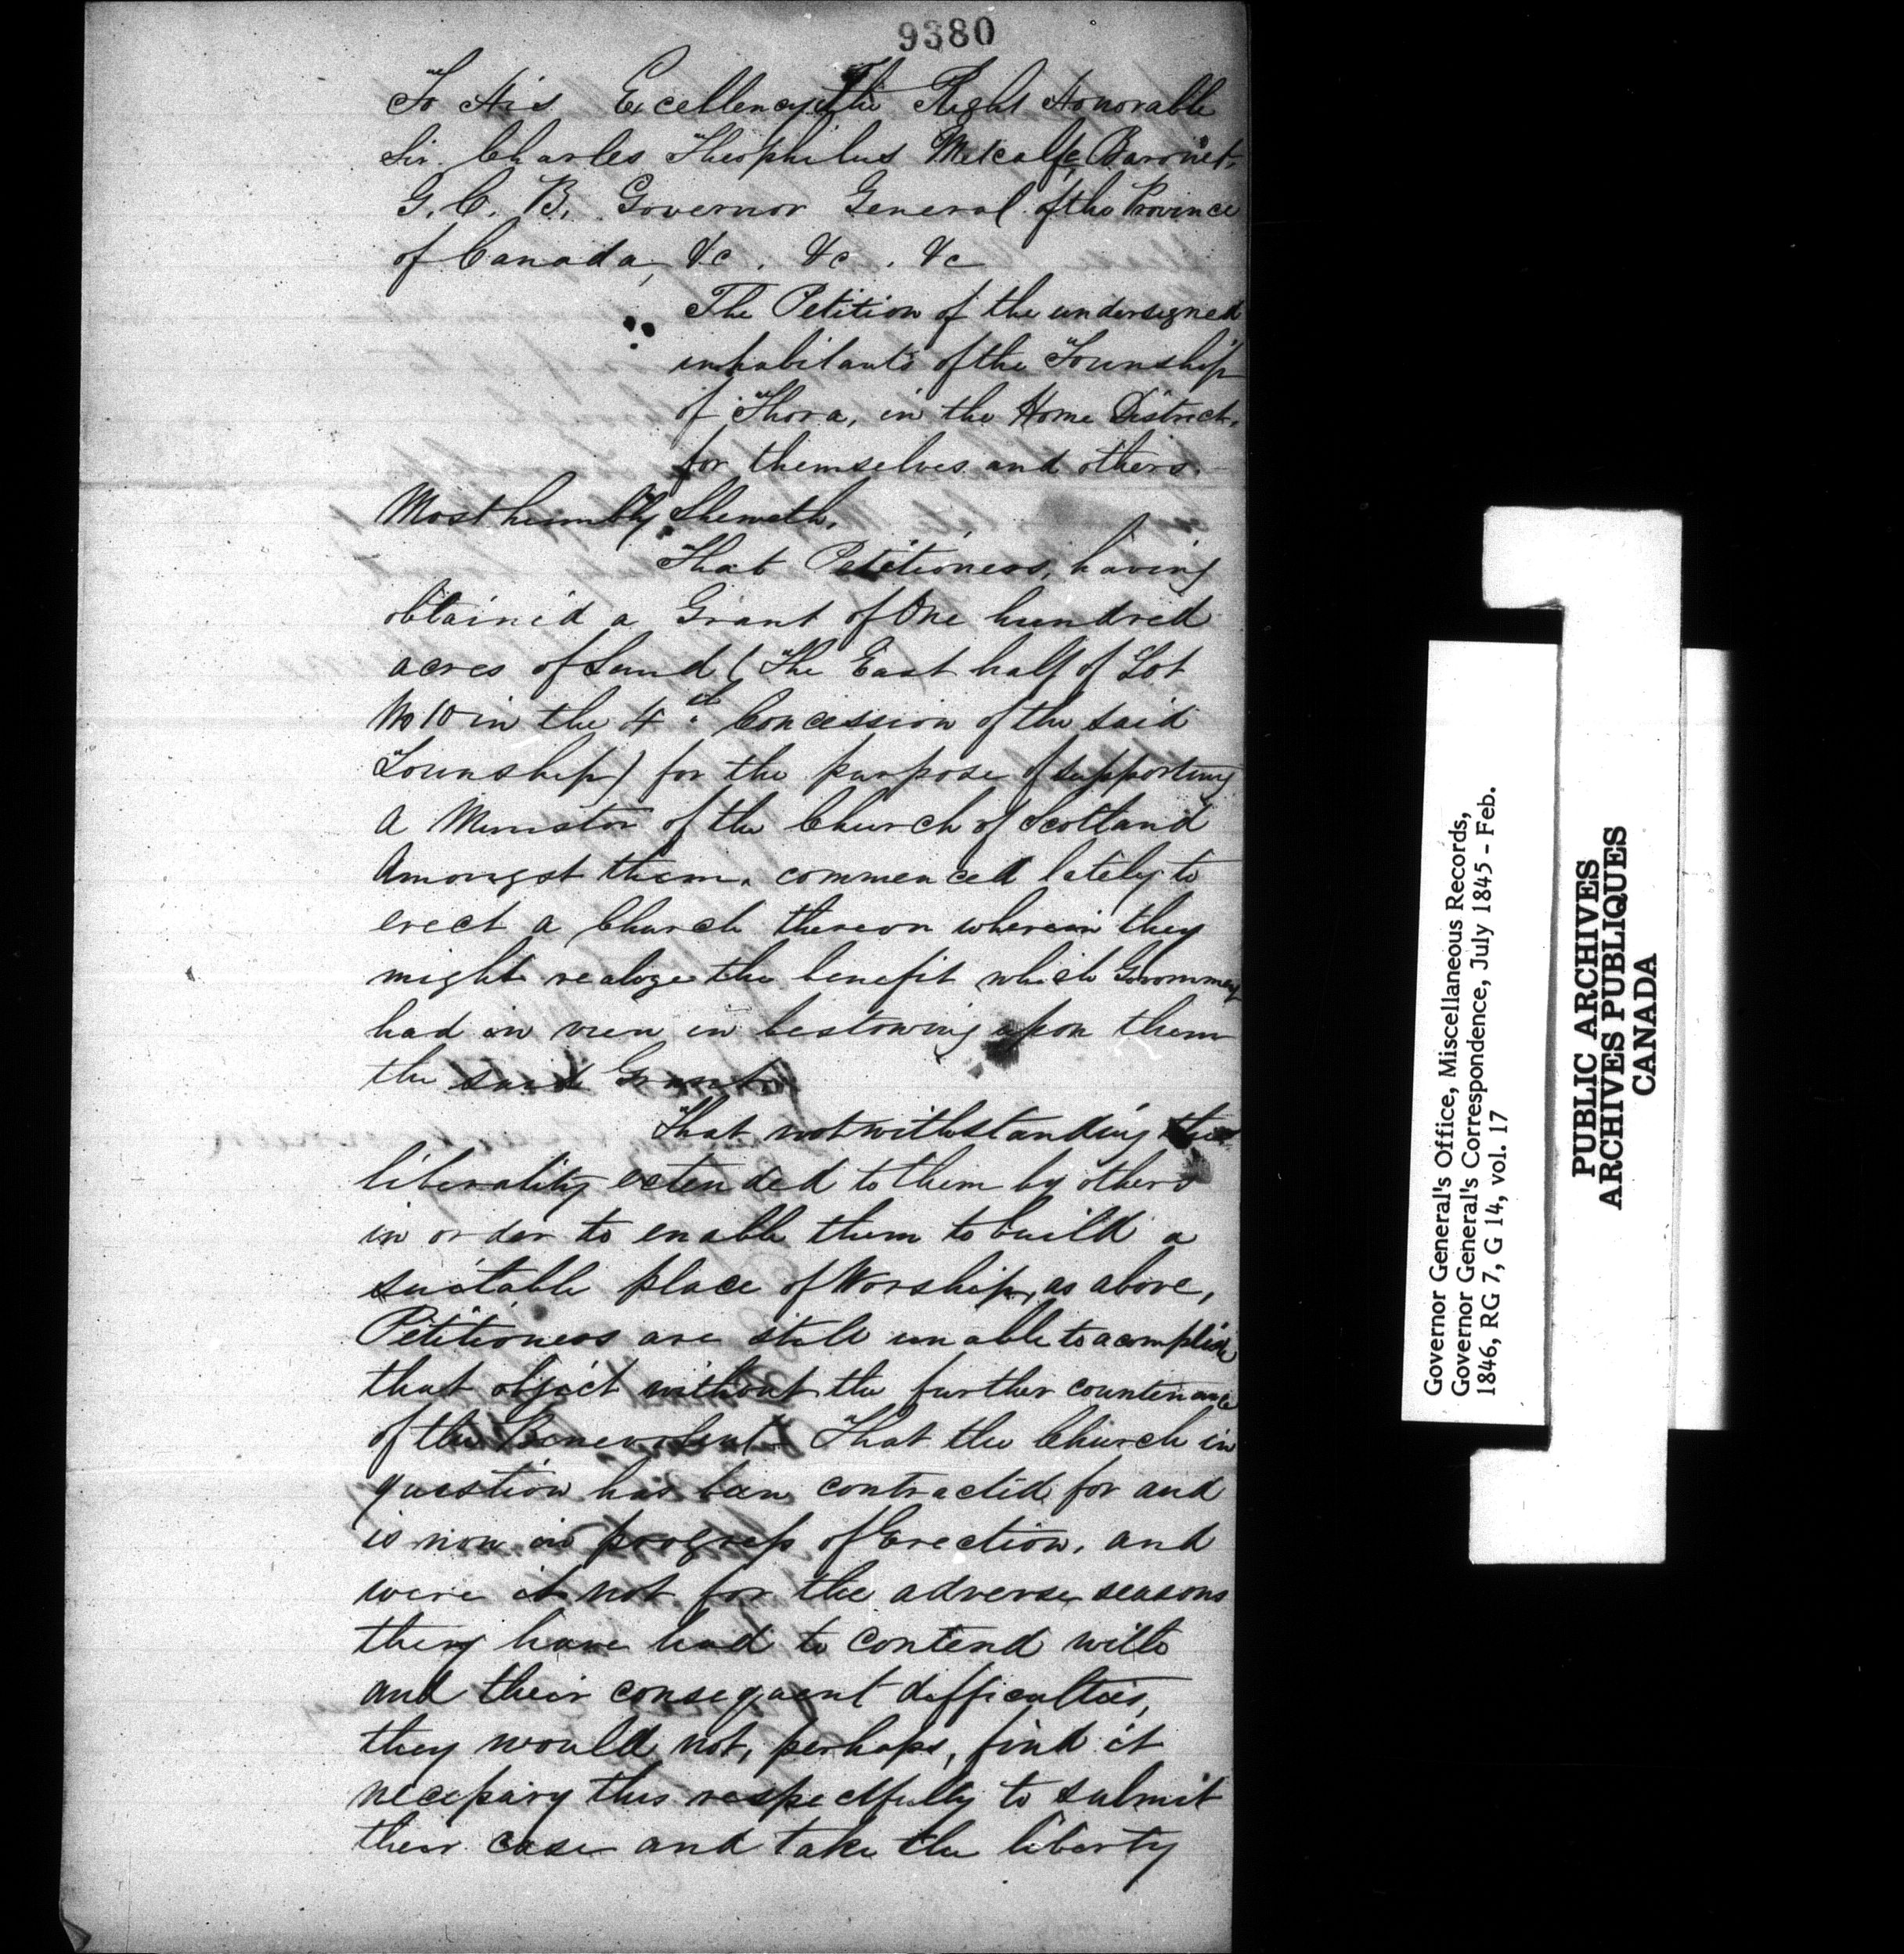 9380
To His Excellency The Right Honorable
Sir Charles Theophilus Metcalfe, Baronet,
G. C. B. Governor General of the Province
of Canada, &c. &c. &c
The Petition of the undersigned
inhabitants of the Township
of Thora, in the Home District,
for themselves and others.
Most humbly Sheweth.
That Petitioners, having
obtained a Grant of One hundred
acres of Land (The East half of Lot
No 10 in the 4th Concession of the said
Township) for the purpose of supporting
a Minister of the Church of Scotland
Amongst them, commenced lately to
erect a Church thereon wherein they
might realize the benefit which Government
had in view in bestowing upon them
the said Grant.
That notwithstanding the
liberality extended to them by others
in order to enable them to build a
suitable place of Worship, as above,
Petitioners are still unable to acomplish
that object without the further countenance
of the Benevolent. That the Church in
question has been contracted for and
is now in progress of Erection, and
were it not for the adverse seasons
they have had to contend with
and their consequent difficulties,
they would not, perhaps, find it
necessary thus respectfully to submit
their case and take the liberty
Governor General's Office, Miscellaneous Records,
Governor General's Correspondence, July 1845 - Feb.
1846, RG 7, G 14, vol. 17
PUBLIC ARCHIVES
ARCHIVES PUBLIQUES
CANADA